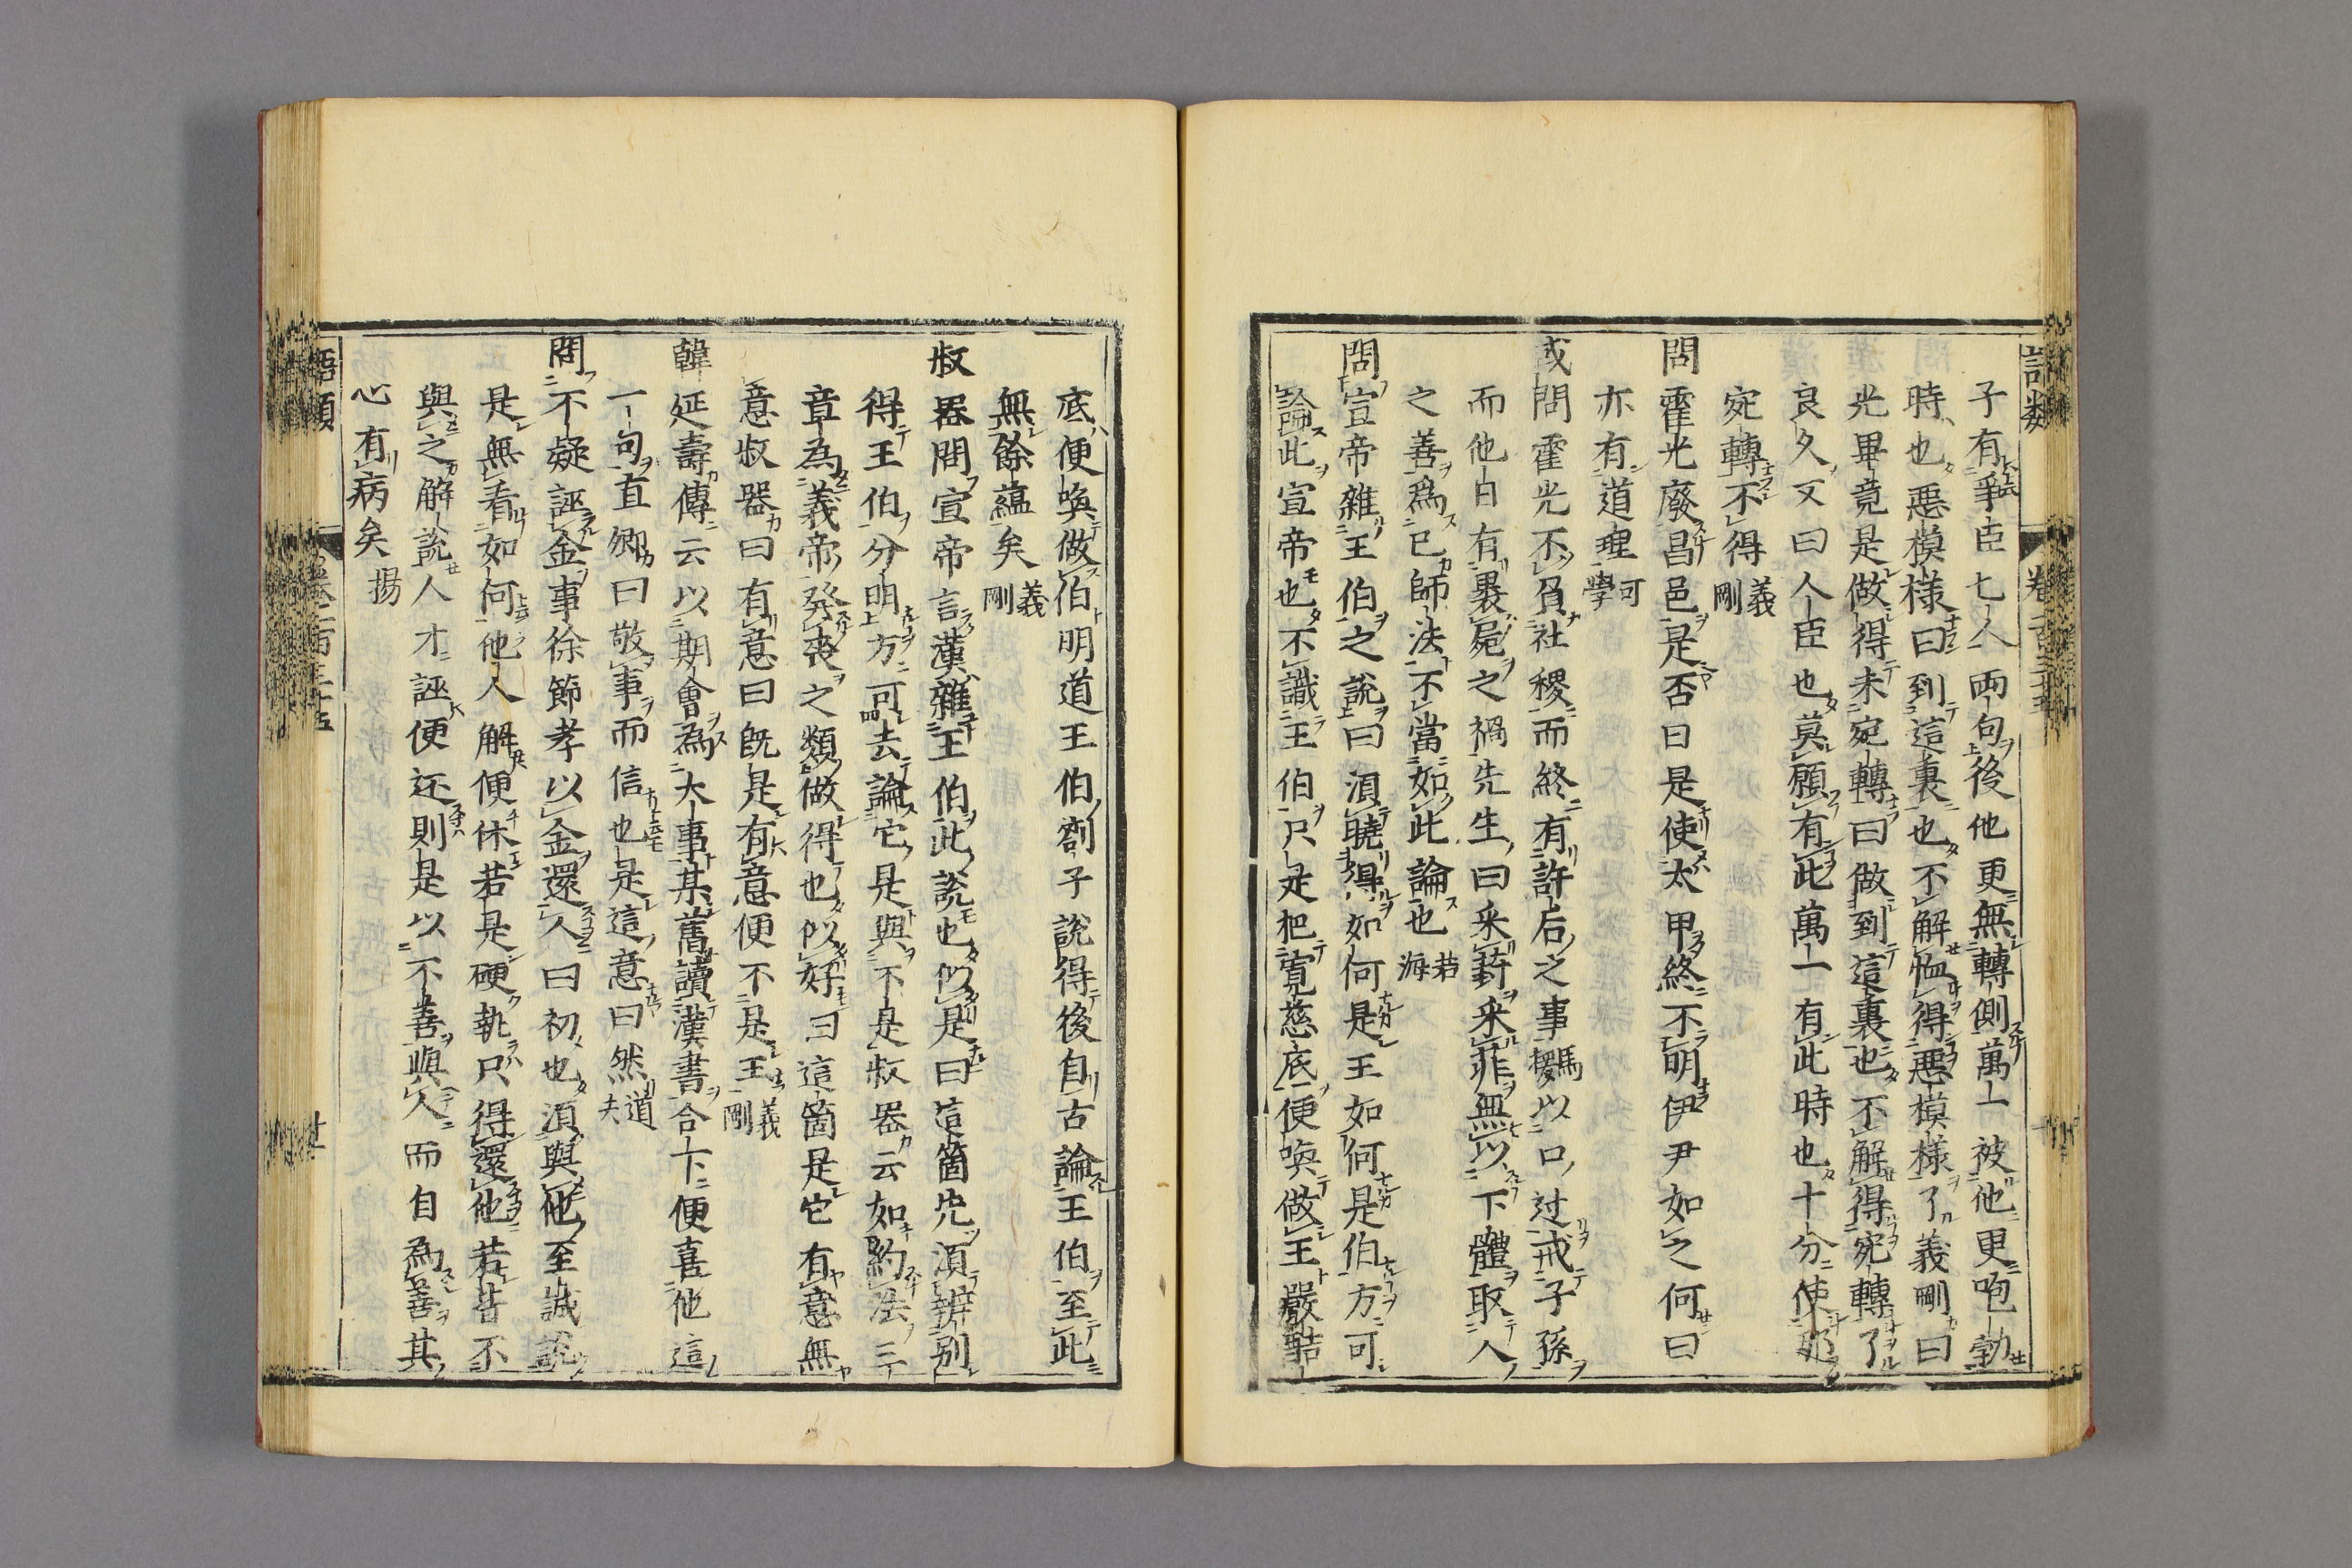 子有爭臣七人兩句後他更無轉側萬一被他更咆勃
時也惡模樣曰到這裏也不解恤得惡模樣了義剛曰
光畢竟是做得未宛轉曰做到這裏也不解得宛轉了
良久又曰人臣也莫願有此萬一有此時也十分使那
宛轉不得義剛
問霍光廢昌邑是否曰是使太甲終不明伊尹如之何曰
亦有道理可學
或問霍光不負社稷而終有許后之事馬援以口过戒子孫
而他日有裹屍之禍先生曰采葑采菲無以下體取人
之善為己師法不當如此論也若海
問宣帝雜王伯之說曰須曉得如何是王如何是伯方可
論此宣帝也不識王伯只是把寬慈底便喚做王嚴酷
底便喚做伯明道王伯劄子說得後自古論王伯至此
無餘蘊矣義剛
叔器問宣帝言漢雜王伯此說也似是曰這箇先須辨别
得王伯分明方可去論它是與不是叔器云如約法三
章為義帝發喪之類做得也似好曰這箇是它有意無
意叔器曰有意曰既是有意便不是王義剛
韓延壽傳云以期會為大事某舊讀漢書合下便喜他這
一句直卿曰敬事而信也是這意曰然道夫
問不疑誣金事徐節孝以金還人曰初也須與他至誠說
是無看如何他人解便休若是硬執只得還他若皆不
與之解說人才誣便还則是以不善與人而自為善其
心有病矣揚
語類
卷一百三十五